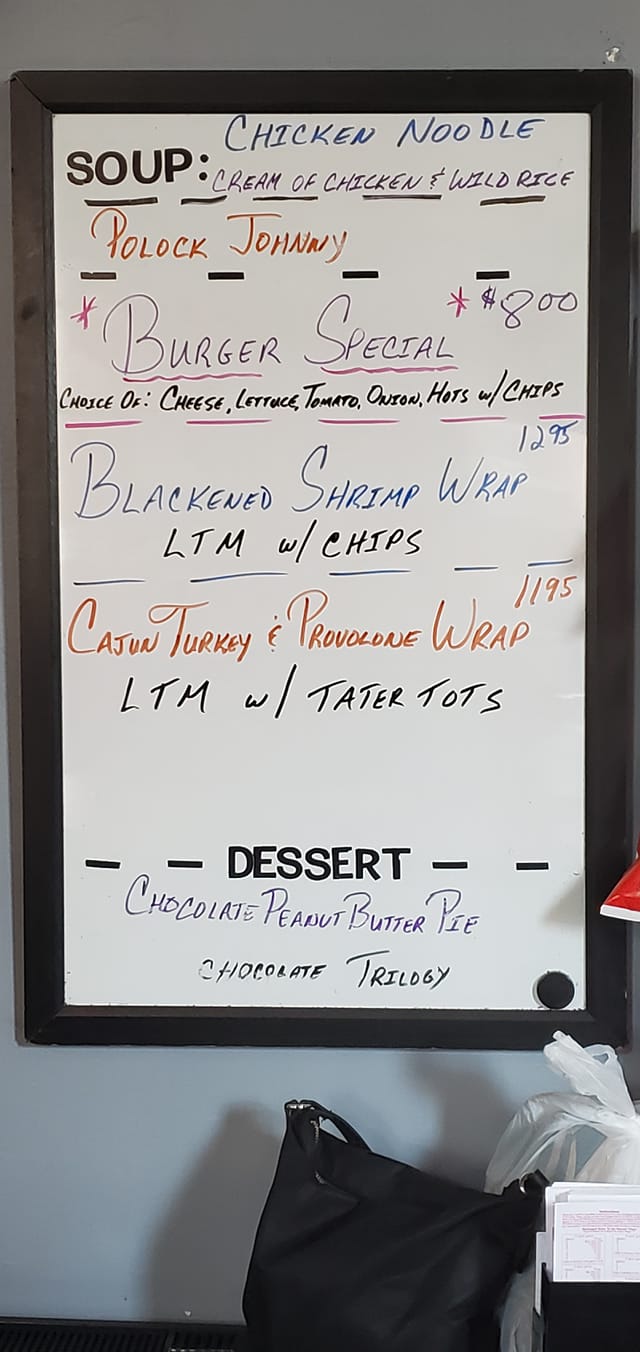 CHICKEN NOODLE
SOUP:
CREAM OF CHICKEN & WILD RICE
POLOCK JOHNNY
* BURGER SPECIAL * $8.00
CHOICE OF: CHEESE, LETTUCE, TOMATO, ONION, HOTS w/ CHIPS
1295
BLACKENED SHRIMP WRAP
LTM w/ CHIPS
1195
CAJUN TURKEY & PROVOLONE WRAP
LTM w/ TATER TOTS
DESSERT
CHOCOLATE PEANUT BUTTER PIE
CHOCOLATE TRILOGY